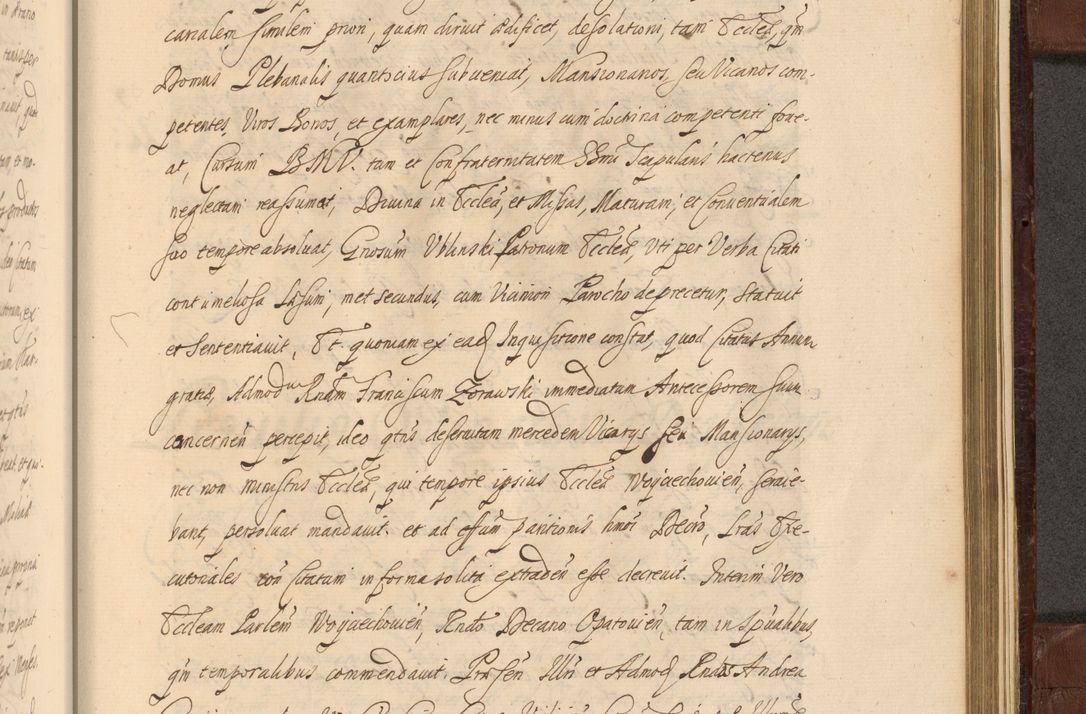 carialem similem priori, quam diruit ædificet, desolationi, tam Eccleã, qm̃
Domus Plebanalis quantocius subveniat, Mansionarios, seu Vicarios com-
petentes, Viros Bonos, et exemplares, nec minus cum doctrina competenti fove-
at, Cursum B.M.V. tam et Confraternitatem SSmi Scapularis hactenus
neglectam reassumat, Divina in Eccleã, et Missas, Maturam, et Conventualem
suo tempore absoluat, Gnosum Vblinski Patronum Eccleã, Vti per Verba Citati
contumeliosa Læsum, met secundus, cum Vicinion Parocho deprecetur, Statuit
et Sententiavit, Et quoniam ex ead Inquisitione constat, quod Citatus Annum
gratiæ, Admod Rndm Franciscum Zorawski immediatum Antecessorem suum
concernen percepit, ideo gtus deservitam mercedem Vicarys seu Mansionarys,
nec non ministris Eccleã, qui tempore ipsius Eccleã Woyciechovien, servie-
bant, persolvat mandavit. et ad effum paritionis hmoi Decro, Lras Exe-
cutoriales con Citatum in forma solita extraden esse decrevit. Interim Vero
Eccleam Parlem Woyciechovien, Rndo Decano Opatovien, tam in Spualibus,
qm̃ temporalibus commendavit. Præsen Illri et Admod Rndis Andrea